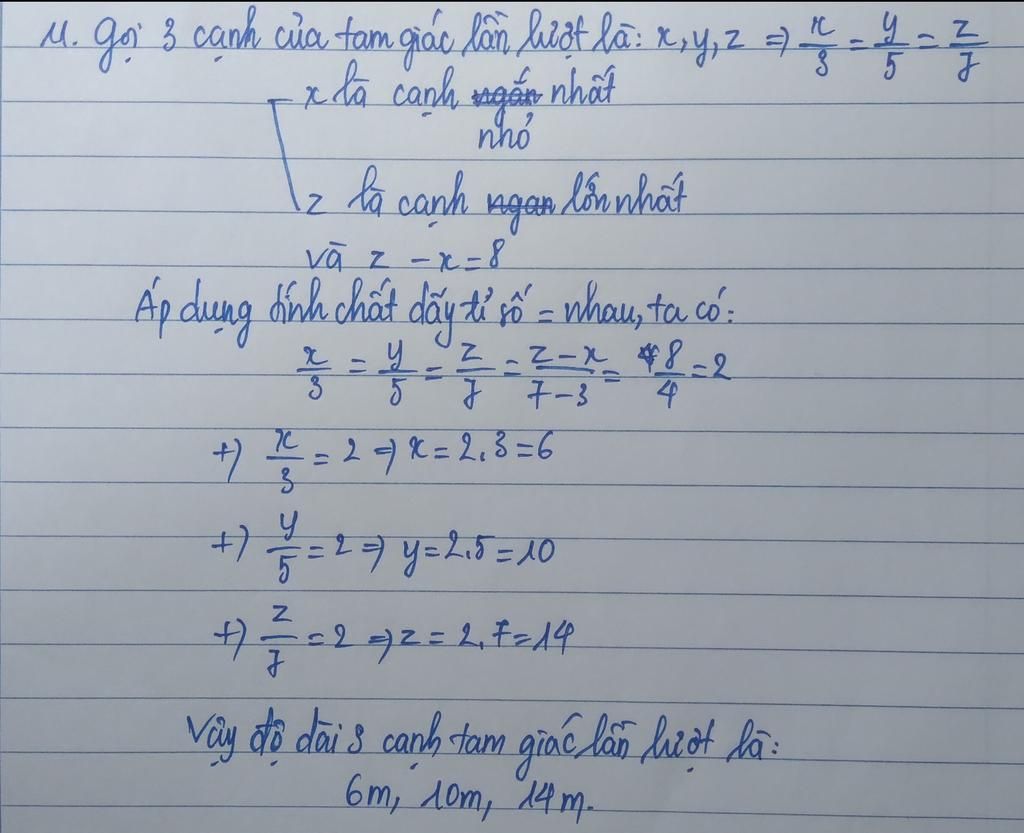 11. Gọi 3 cạnh của tam giác lần lượt là: x, y, z => x/3 = y/5 = z/7
x là cạnh ngắn nhất
nhỏ
z là cạnh ngan lớn nhất
và z - x = 8
Áp dụng tính chất dãy tỉ số = nhau, ta có:
x/3 = y/5 = z/7 = z-x/7-3 = 8/4 = 2
+) x/3 = 2 => x = 2.3 = 6
+) y/5 = 2 => y = 2.5 = 10
+) z/7 = 2 => z = 2.7 = 14
Vậy độ dài 3 cạnh tam giác lần lượt là:
6m, 10m, 14m.